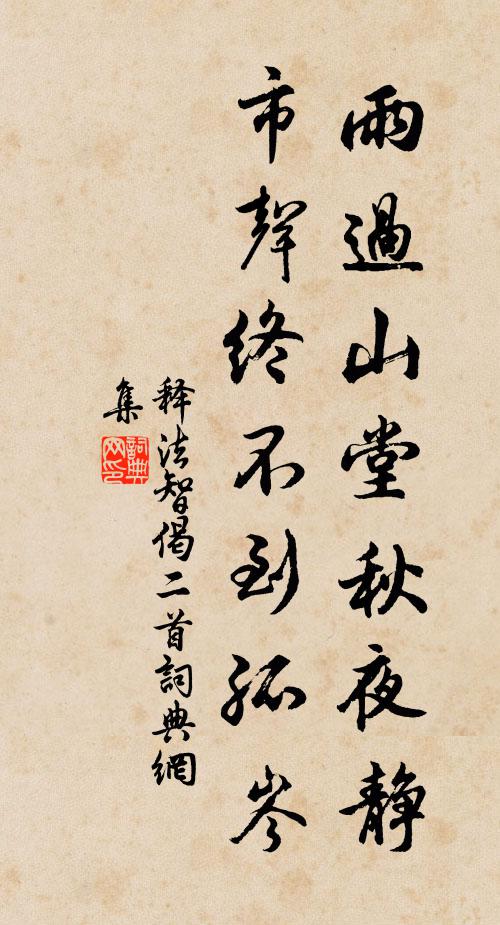 雨過山堂秋夜靜
市聲終不到孤岑
释法智偈二首詞典網
集
詞典網印